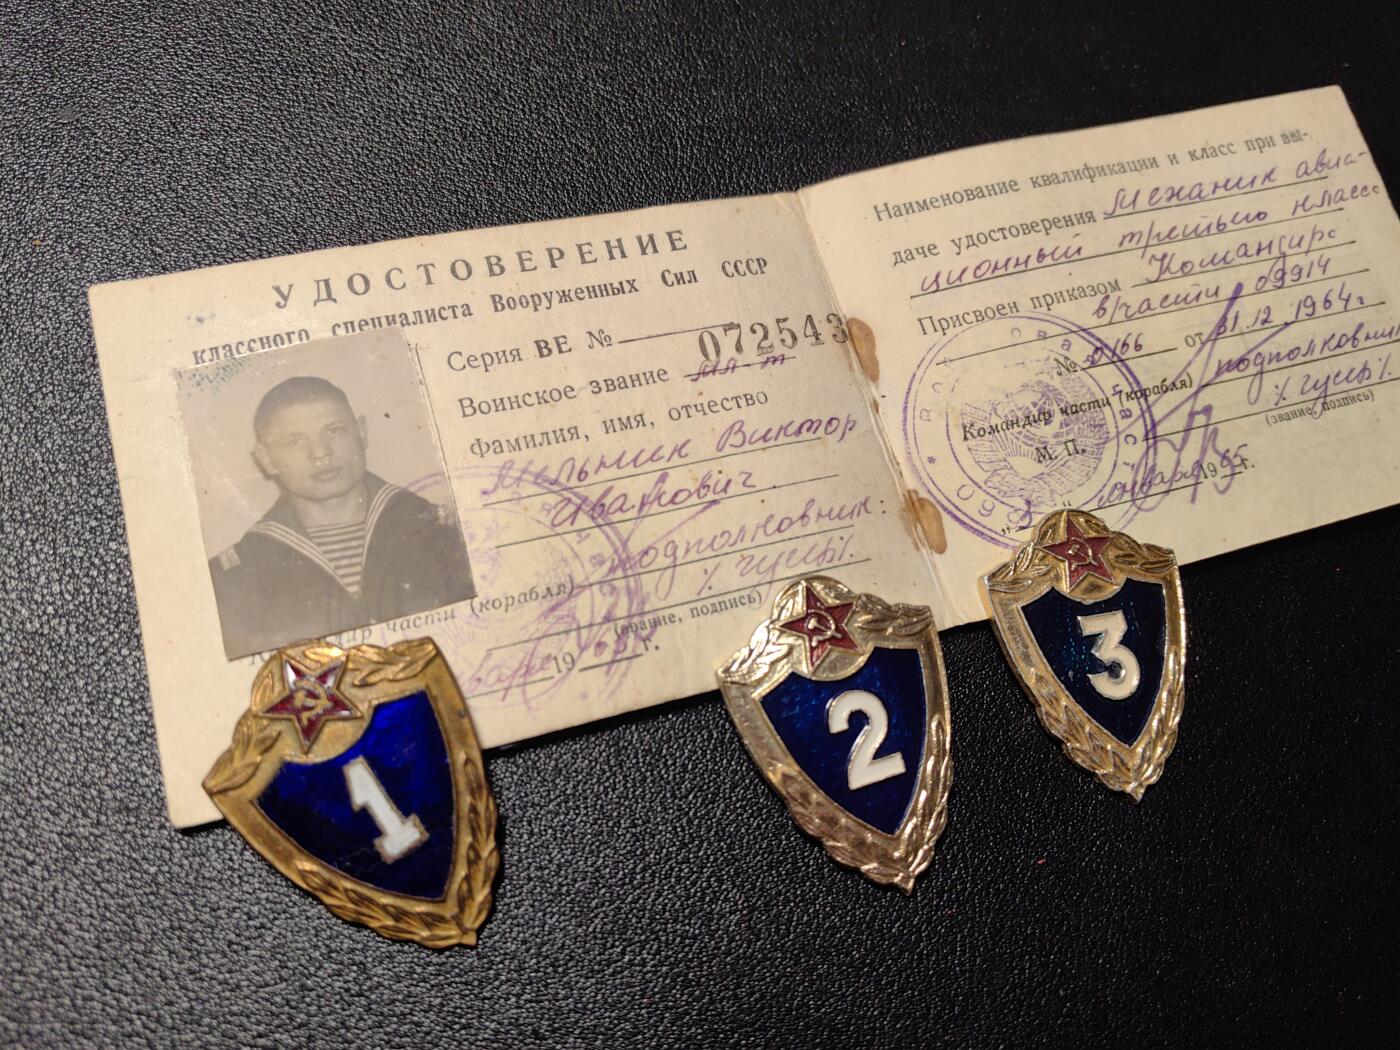 УДОСТОВЕРЕНИЕ
классного специалиста Вооруженных Сил СССР
Серия ВЕ № 072543
Воинское звание мл-т
Фамилия, имя, отчество
Мельник Виктор
Иванович
подполковник:
(корабля)
части
(звание, подпись)
19 65 г.
Наименование квалификации и класс при вы-
даче удостоверения Механик авиа-
ционный третьего класса
Присвоен приказом Командира
в/части 09914
№ 0166 от 31.12 1964г.
Командир части (корабля) подполковник
(звание, подпись)
М. П.
января 1965г.
1
2
3